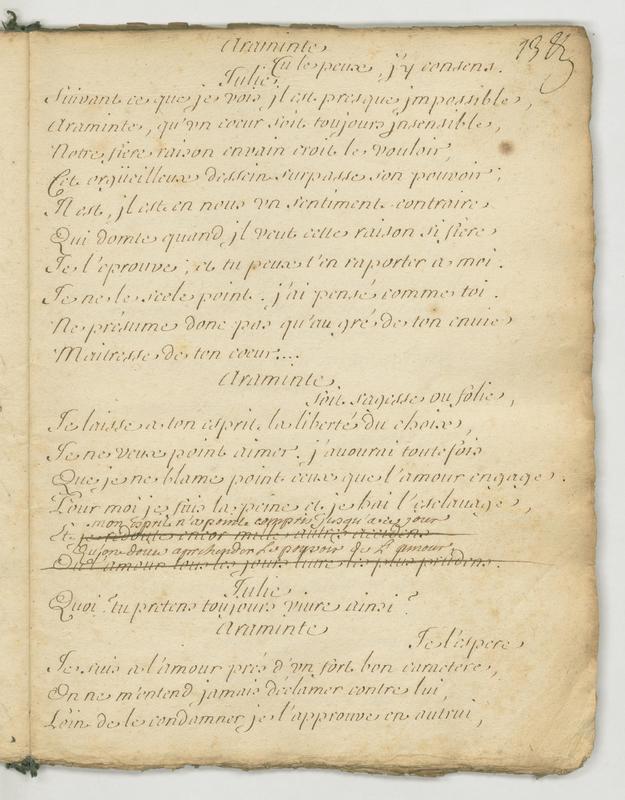 138
Araminte
Tu le peux, j'y consens.
Julie
Suivant ce que je vois, jl est presque jmpossible,
Araminte, qu'vn coeur soit toujours jnsensible,
Notre fiere raison envain croit le vouloir,
Cet orgüeilleux dessein surpasse son pouvoir;
Jl est, jl est en nous vn sentiment contraire
Qui domte quand jl veut cette raison si fiere
Je l'eprouve; et tu peux t'en raporter a moi.
Je ne le scele point. j'ai pensé comme toi.
Ne présume donc pas qu'au gré de ton envie
Maitresse de ton coeur....
Araminte
soit sagesse ou folie,
Je laisse a ton esprit la liberté du choix,
Je ne veux point aimer. j'auourai toutefois
Que je ne blame point ceux que l'amour engage.
Pour moi je fuis la peine et je hai l'esclavage,
mon esprit n'a point compris jusqu'a ce jour
Et je redoute encor mille autres accidens
Qu'on doive aprehender le pouvoir de l'amour
Dont l'amour tous les jours livre les plus prudens.
Julie
Quoi? tu pretens toujours vivre ainsi?
Araminte
Je l'espere
Je suis a l'amour prés d'vn fort bon caractere,
On ne m'entend jamais declamer contre lui,
Loin de le condamner je l'approuve en autrui,